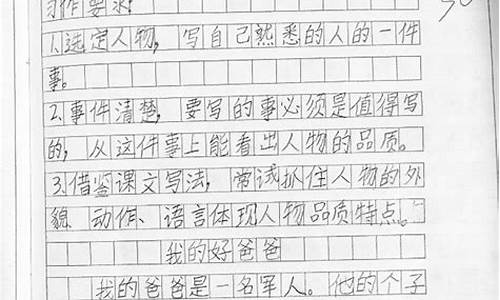 习作要求:
1.选定人物，写自己熟悉的人的一件
事。
2.事件清楚，要写的事必须是值得写
的，从这件事上能看出人物的品质。
3.借鉴课文写法，常试抓住人物的外
貌、动作、语言体现人物品质特点。
我的好爸爸
我的爸爸是一名军人。他的个子